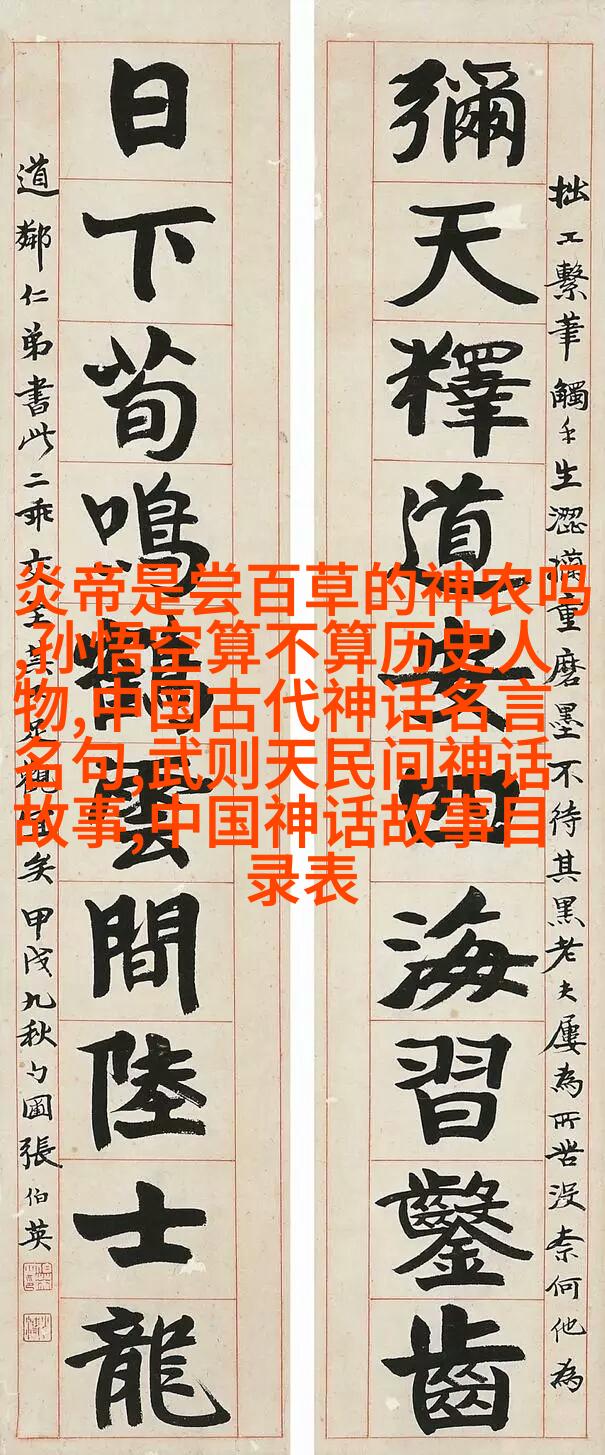 炎帝是尝百草的神农吗
,孙悟空算不算历史人
物,中国古代神话名言
名句,武则天民间神话
故事,中国神话故事目
录表
拙工繫筆觸手生澀重磨墨不待其黑老夫屢為所苦沒柰何他為
彌天釋道安四海習鑿齒
日下荀鳴鶴雲間陸士龍
道鄰仁弟書此二乖交至其足觀矣甲戌九秋勺圃張伯英